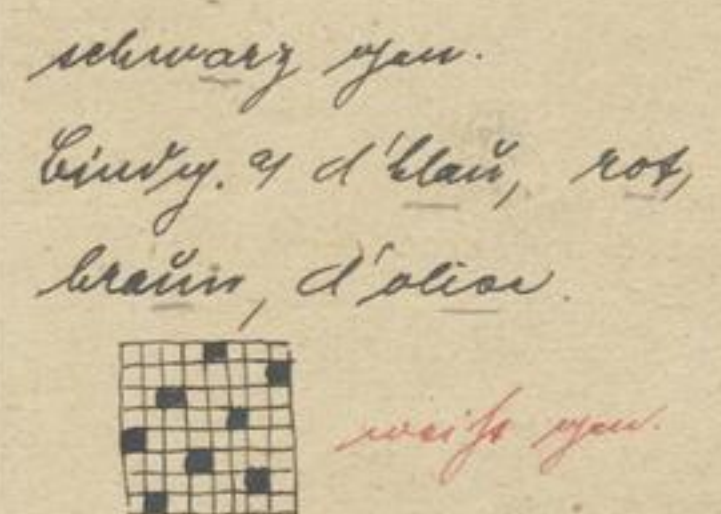 schwarz gen.
Bindg. a) d'blau, rot,
braun, d'olive.
weiß gen.